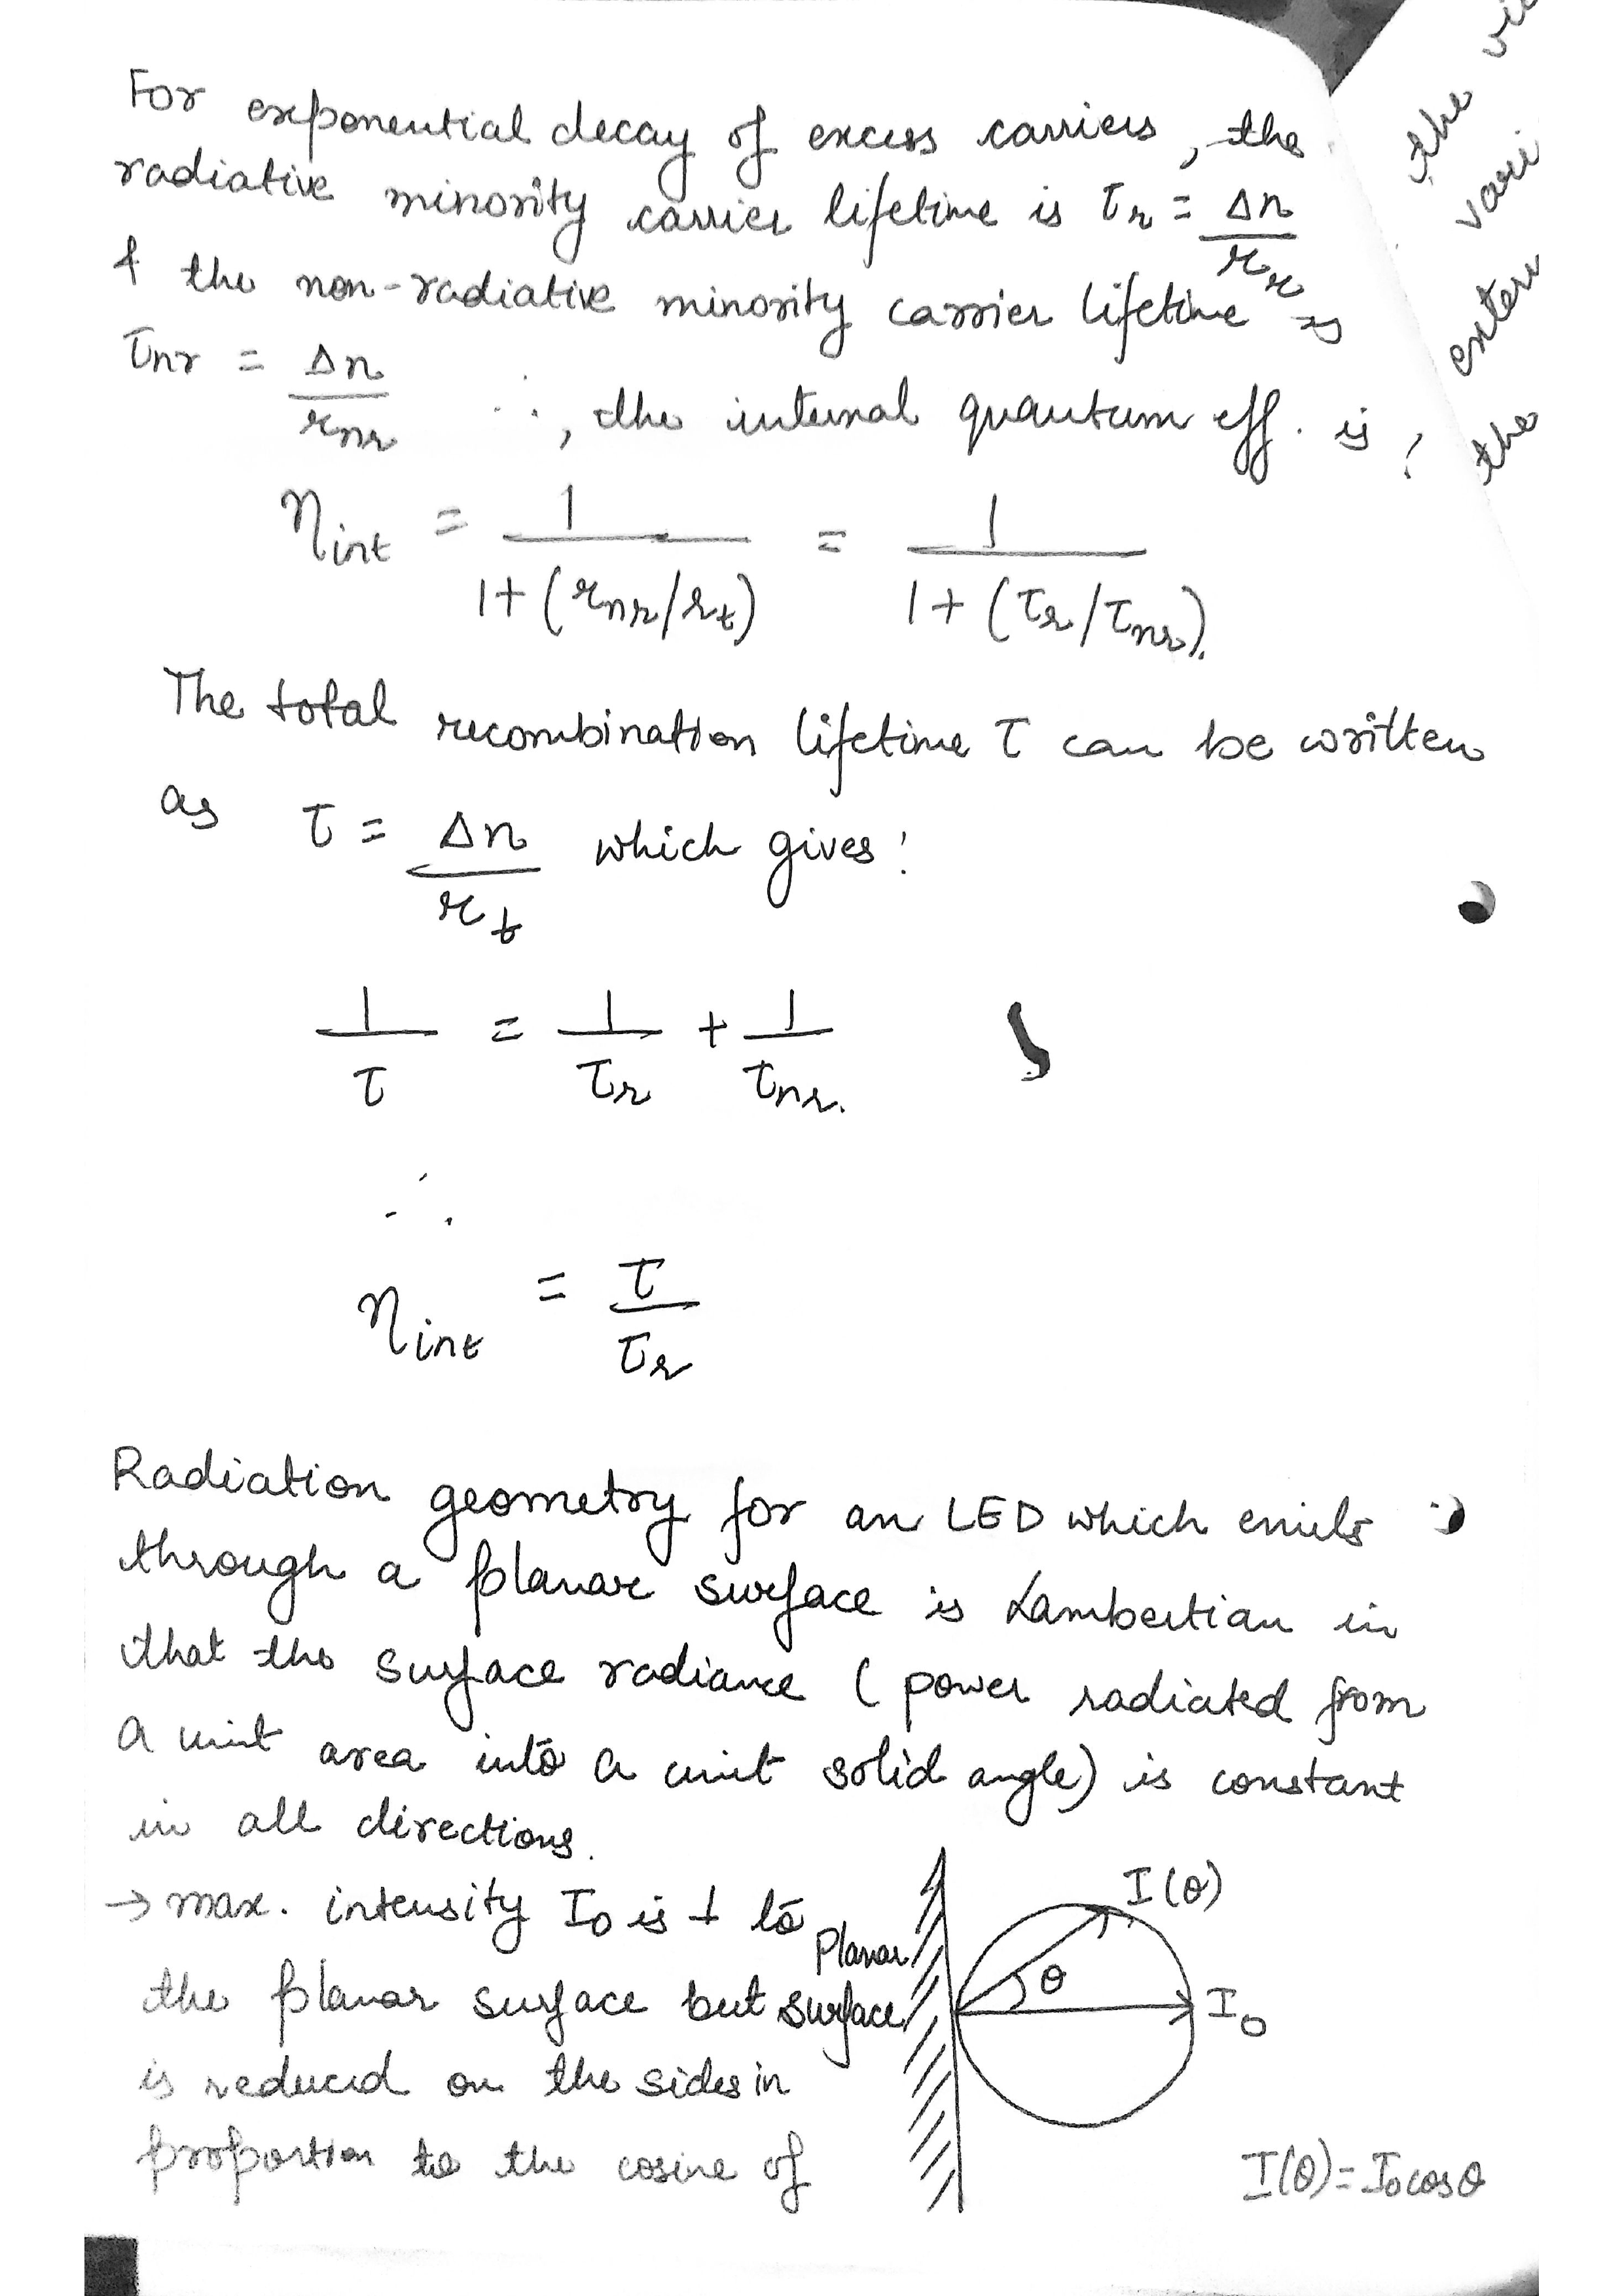 For exponential decay of excess carriers, the
radiative minority carrier lifetime is τr = Δn/rr
& the non-radiative minority carrier lifetime is
τnr = Δn/rnr ∴, the internal quantum eff. is:
ηint = 1/(1+(rnr/rt)) = 1/(1+(τr/τnr)).
The total recombination lifetime τ can be written
as τ = Δn/rt which gives:
1/τ = 1/τr + 1/τnr.
∴
ηint = τ/τr
Radiation geometry for an LED which emits
through a planar surface is Lambertian in
that the surface radiance (power radiated from
a unit area into a unit solid angle) is constant
in all directions.
→ max. intensity I0 is ⊥ to
the planar surface but
is reduced on the sides in
proportion to the cosine of
Planar
surface
I(θ)
θ
I0
I(θ) = I0 cosθ
the
vari
exter
the